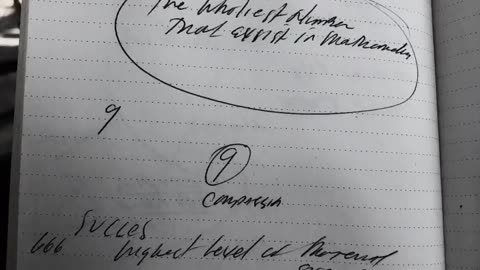 The Wholiest Number
That exist in Mathematics
9
9
Compassion
Succes
666 highest level of